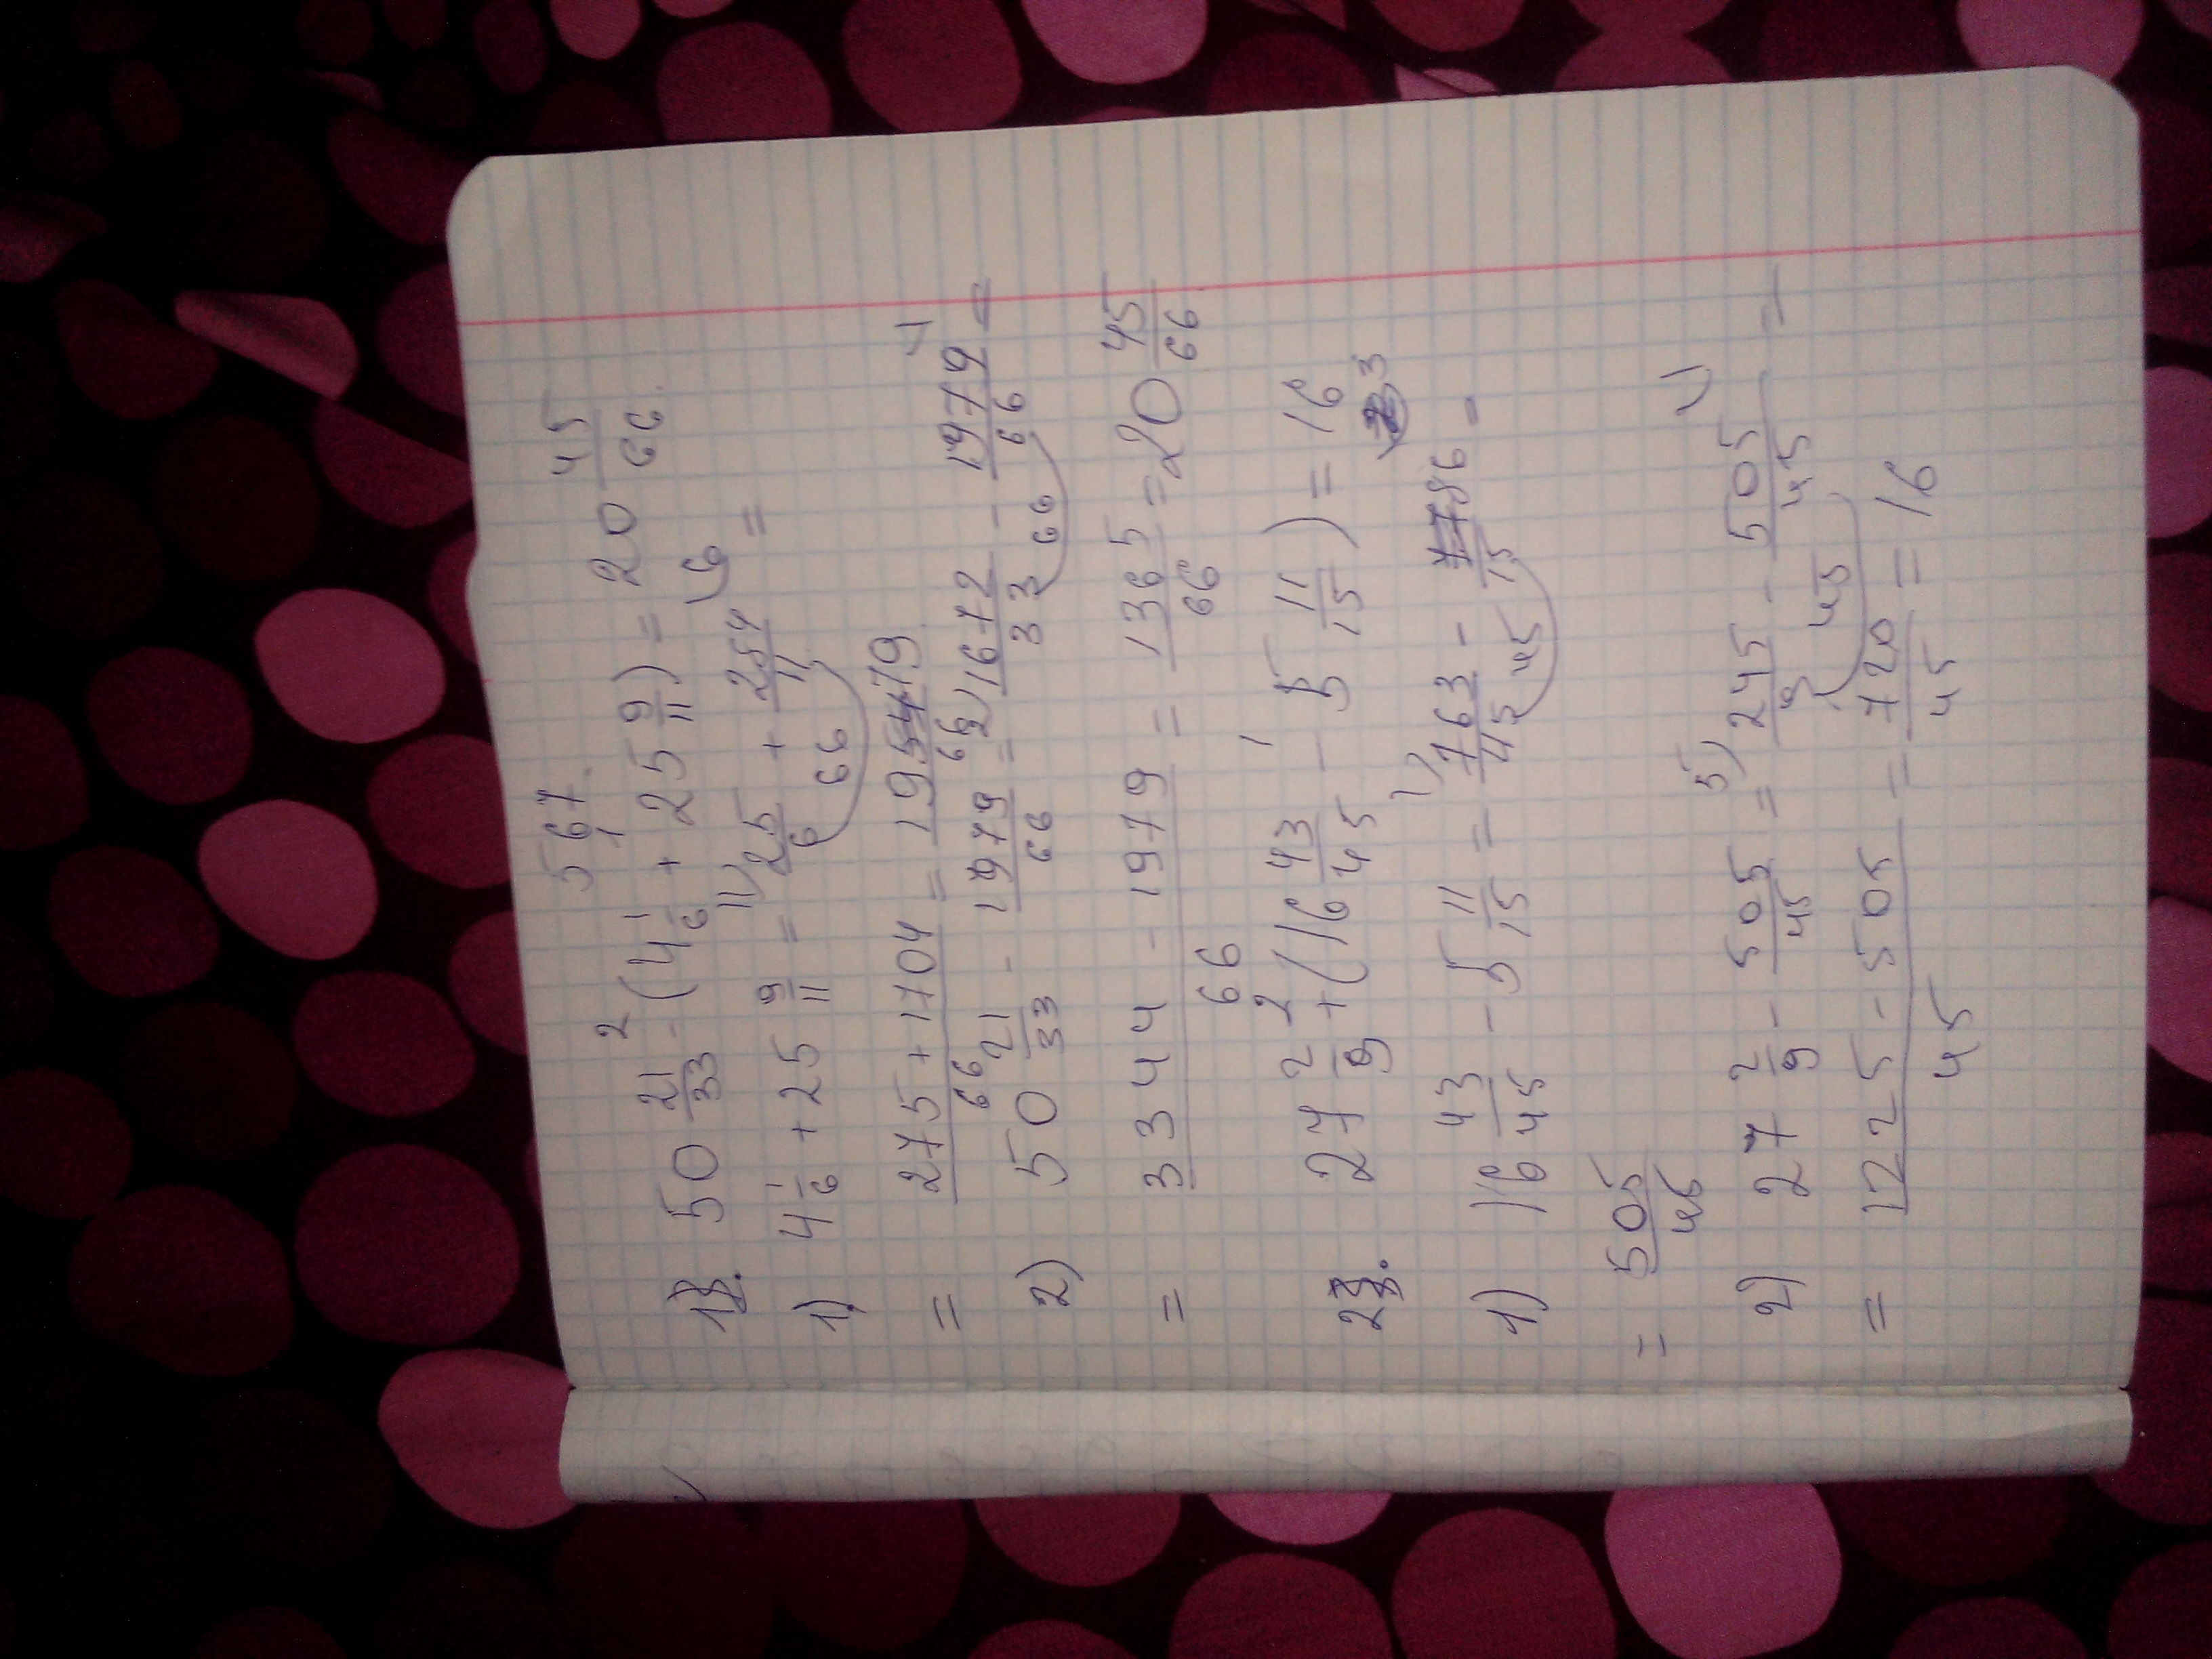 567.
1) 50 21/33 - (4 1/6 + 25 9/11) = 20 45/66.
1) 4 1/6 + 25 9/11 = 25/6 + 284/11 =
= 275 + 1704/66 = 1979/66
2) 50 21/33 - 1979/66 = 1672/33 - 1979/66 =
= 3344 - 1979/66 = 1365/66 = 20 45/66
2) 27 2/9 + (16 43/45 - 5 11/15) = 16
1) 16 43/45 - 5 11/15 = 763/45 - 86/15 =
= 505/45
2) 27 2/9 - 505/45 = 245/9 - 505/45 =
= 1225 - 505/45 = 720/45 = 16